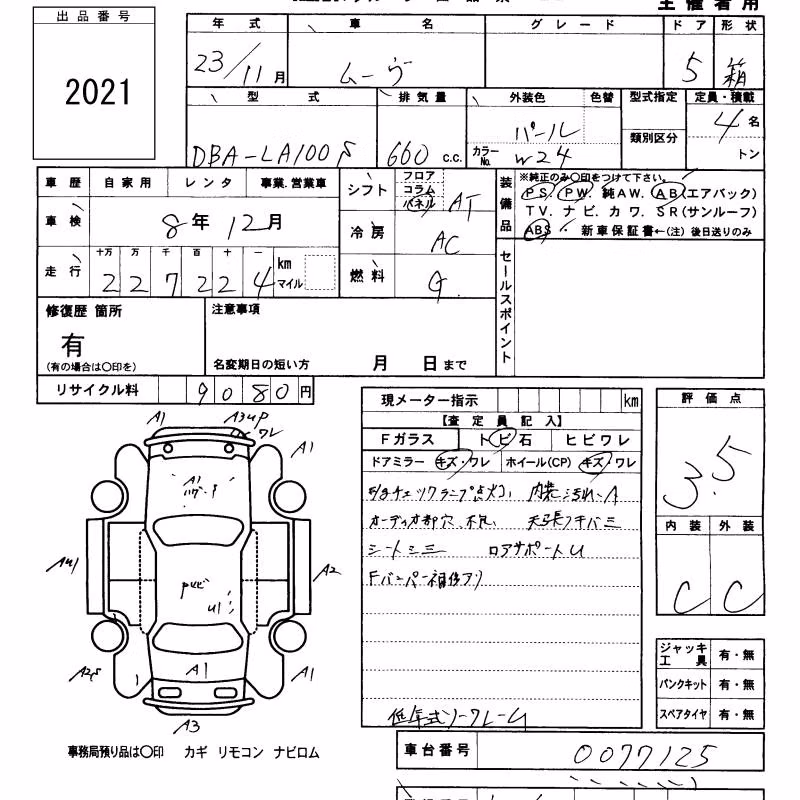 主催者用
出品番号
2021
年式 車名 グレード ドア 形状
23/11月 ムーヴ 5 箱
型式 排気量 外装色 色替 型式指定 定員・積載
DBA-LA100S 660 c.c. パール 類別区分 4名
カラーNo. W24 トン
車歴 自家用 レンタ 事業.営業車
車検 8年12月
走行 十万 万 千 百 十 一
227224 km マイル
シフト フロア コラム パネル AT
冷房 AC
燃料 G.
装備品
※純正のみ〇印をつけて下さい。
PS. PW. 純AW. AB(エアバック)
TV. ナビ. カワ. SR(サンルーフ)
ABS・ 新車保証書←(注) 後日送りのみ
セールスポイント
修復歴 箇所
有
(有の場合は〇印を)
注意事項
名変期日の短い方 月 日まで
リサイクル料 9080円
現メーター指示 km
【査定員記入】
Fガラス トビ石 ヒビワレ
ドアミラー キズ・ワレ ホイール(CP) キズ・ワレ
チェックランプ点灯、 内装汚れ.A
オーディオ部穴、不良、 天張リキバミ
シートシミ ロアサポートU
Fバンパー補修アリ
低年式ノークレーム
評価点
3.5
内装 外装
C C
ジャッキ工具 有・無
パンクキット 有・無
スペアタイヤ 有・無
A1 A3UP ワレ
A1
A1
A2
A1
A1
A3
U1
事務局預り品は〇印 カギ リモコン ナビロム
車台番号 0077125